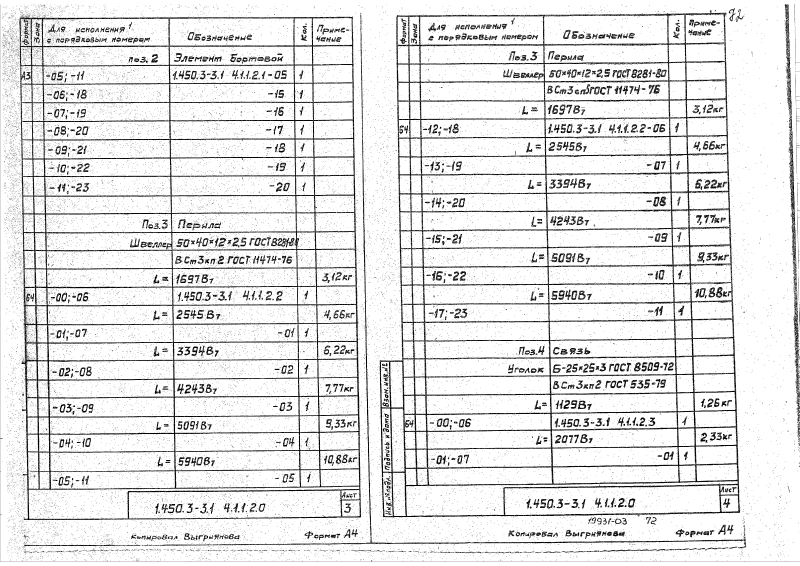 72
формат
Зона
Для исполнения 1 с порядковым номером
Обозначение
Кол.
Приме-чание
поз. 2 Элемент Бортовой
А3 -05; -11 1.450.3-3.1 4.1.1.2.1-05 1
-06; -18 -15 1
-07; -19 -16 1
-08; -20 -17 1
-09; -21 -18 1
-10; -22 -19 1
-11; -23 -20 1
Поз.3 Перила
Швеллер 50×40×12×2,5 ГОСТ 8281-80
В Ст 3 кп 2 ГОСТ 11474-76
L= 1697 Вт 3,12кг
Б4 -00; -06 1.450.3-3.1 4.1.1.2.2 1
L= 2545 Вт 4,66кг
-01; -07 -01 1
L= 3394 Вт 6,22кг
-02; -08 -02 1
L= 4243 Вт 7,77кг
-03; -09 -03 1
L= 5091 Вт 9,33кг
-04; -10 -04 1
L= 5940 Вт 10,88кг
-05; -11 -05 1
1.450.3-3.1 4.1.1.2.0
Лист
3
Копировал Выгриянова Формат А4
формат
Зона
Для исполнения 1 с порядковым номером
Обозначение
Кол.
Приме-чание
Поз.3 Перила
Швеллер 50×40×12×2,5 ГОСТ 8281-80
В Ст 3 сп5 ГОСТ 11474-76
L= 1697 Вт 3,12кг
Б4 -12; -18 1.450.3-3.1 4.1.1.2.2-06 1
L= 2545 Вт 4,66кг
-13; -19 -07 1
L= 3394 Вт 6,22кг
-14; -20 -08 1
L= 4243 Вт 7,77кг
-15; -21 -09 1
L= 5091 Вт 9,33кг
-16; -22 -10 1
L= 5940 Вт 10,88кг
-17; -23 -11 1
Поз.4 Связь
Уголок Б-25×25×3 ГОСТ 8509-72
В Ст 3 кп 2 ГОСТ 535-79
L= 1129 Вт 1,26кг
Б4 -00; -06 1.450.3-3.1 4.1.1.2.3 1
L= 2077 Вт 2,33кг
-01; -07 -01 1
Инв.№подл. Подпись и дата Взам.инв.№
1.450.3-3.1 4.1.1.2.0
Лист
4
19931-03 72
Копировал Выгриянова Формат А4